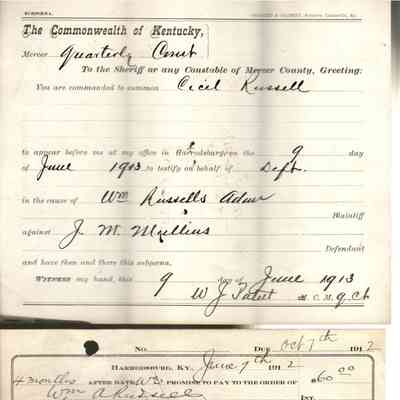 SUBPOENA.
The Commonwealth of Kentucky,
Mercer Quarterly Court
To the Sheriff or any Constable of Mercer County, Greeting:
You are commanded to summon Cecil Russell
to appear before me at my office in Harrodsburg, on the 9 day
of June 1913 to testify on behalf of Deft.
in the cause of Wm Russells Admr
Plaintiff
against J. M. Mullins
Defendant
and have then and there this subpœna.
WITNESS my hand, this 9 day of June 1913
W J
No. DUE Oct 7th 1912
HARRODSBURG, KY. June 7th 1912
4 months AFTER DATE We PROMISE TO PAY TO THE ORDER OF
Wm A Russell $60 00
INT.